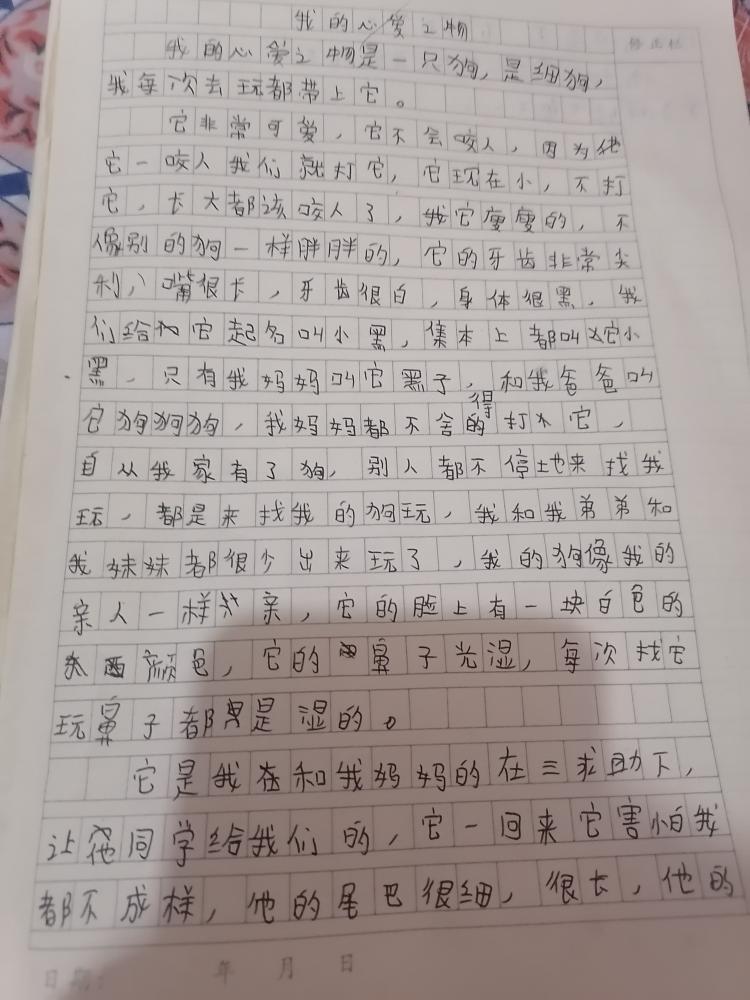 我的心爱之物
修正栏
我的心爱之物是一只狗，是细狗，
我每次去玩都带上它。
它非常可爱，它不会咬人，因为他
它一咬人我们就打它，它现在小，不打
它，长大都该咬人了，我它瘦瘦的，不
像别的狗一样胖胖的，它的牙齿非常尖
利，嘴很长，牙齿很白，身体很黑，我
们给它起名叫小黑，集本上都叫它小
黑，只有我妈妈叫它黑子，和我爸爸叫
它狗狗狗，我妈妈都不舍得打它，
自从我家有了狗，别人都不停地来找我
玩，都是来找我的狗玩，我和我弟弟和
我妹妹都很少出来玩了，我的狗像我的
亲人一样亲，它的脸上有一块白色的
颜色，它的鼻子光湿，每次找它
玩鼻子都是湿的。
它是我在和我妈妈的在三求助下，
让同学给我们的，它一回来它害怕我
都不成样，他的尾巴很细，很长，他的
日期： 年 月 日